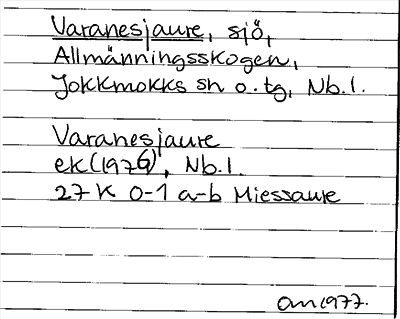 Varanesjaure, sjö,
Allmänningsskogen,
Jokkmokks sn o. tg, Nb.l.
Varanesjaure
ek (1976), Nb.l.
27 K 0-1 a-b Miessaure
OM 1977.